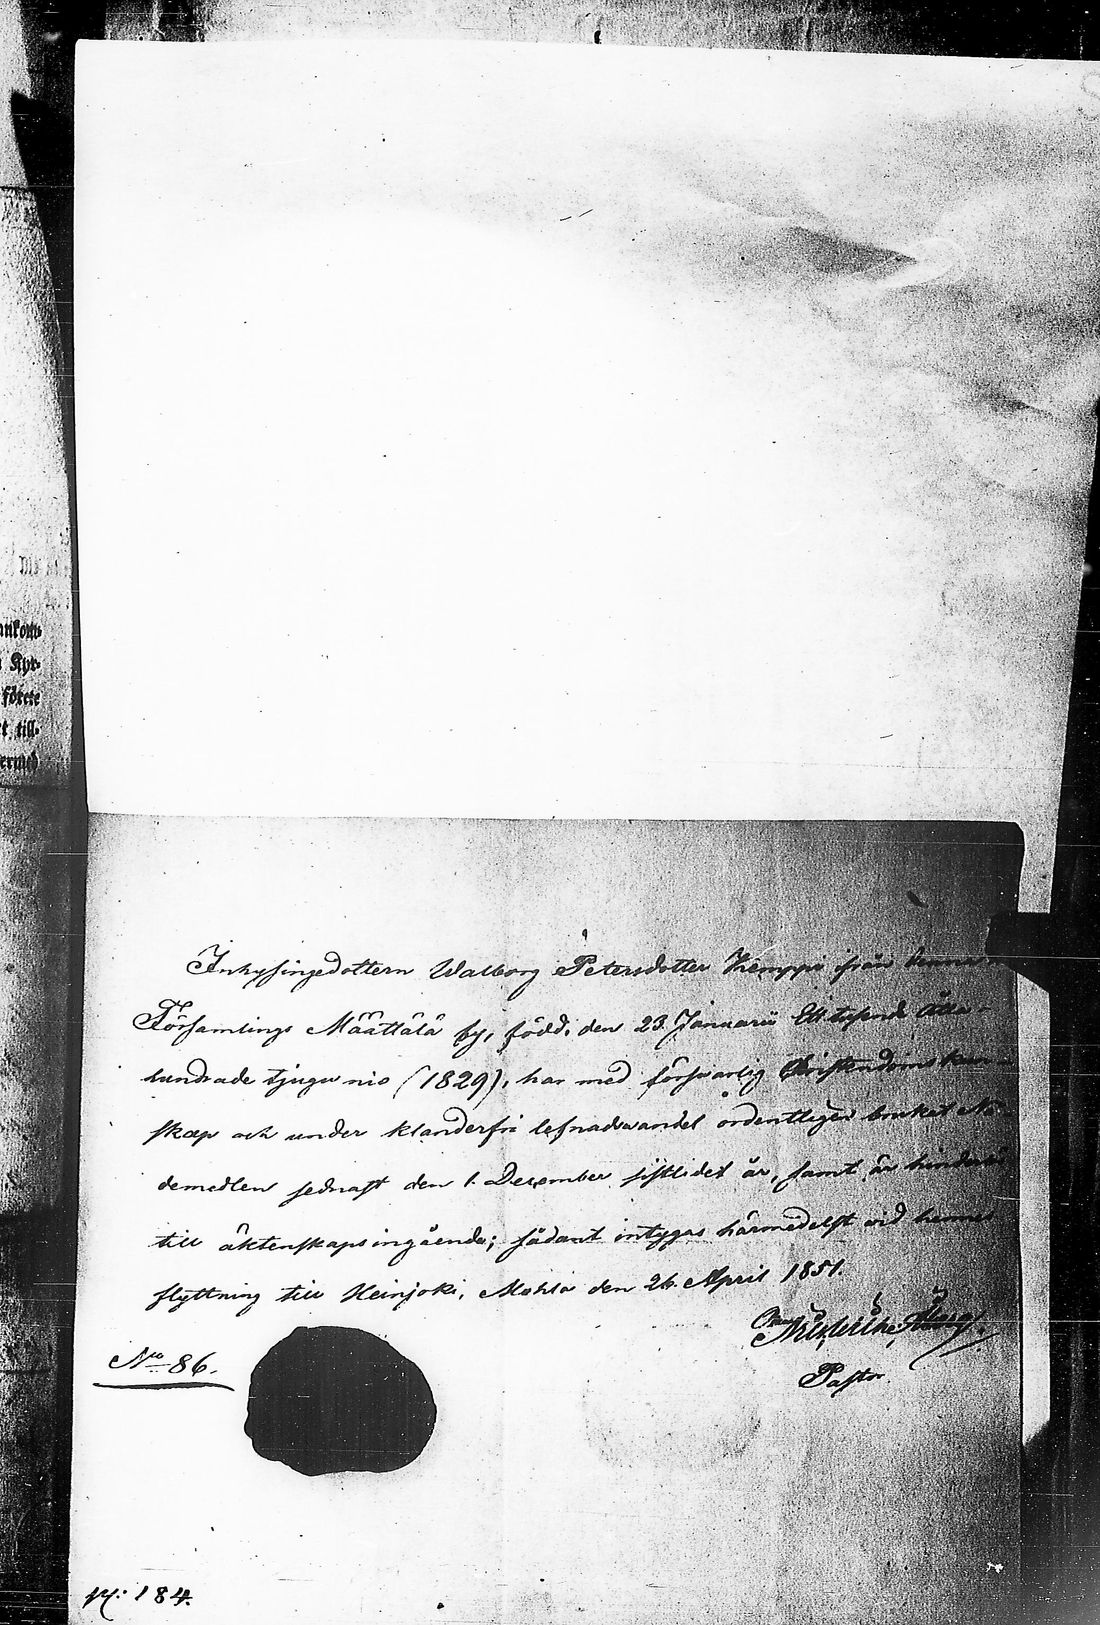 ankom-
Kyr-
förete
t till-
ermed
Inhysingedottern Walborg Petersdotter Kemppi från denna
Församlings Määttälä by, född den 23 Januarii Ett tusende Åtta-
hundrade tjugu nio (1829), har med försvarlig Christendoms kun-
skap och under klanderfri lefnadsvandel ordentligen brukat Nå-
demedlen sednast den 1. December sistlidet år, samt är hinderlös
till äktenskaps ingående; sådant intygas härmedelst vid hennes
flyttning till Heinjoki, Mohla den 26 April 1851.
Pastor.
No 86.
184.